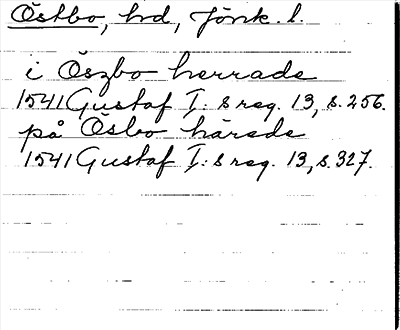 Östbo, hd, Jönk. l.
i Öszbo herrade
1541 Gustaf I:s reg. 13, s. 256.
på Ösbo härade
1541 Gustaf I:s reg. 13, s. 327.